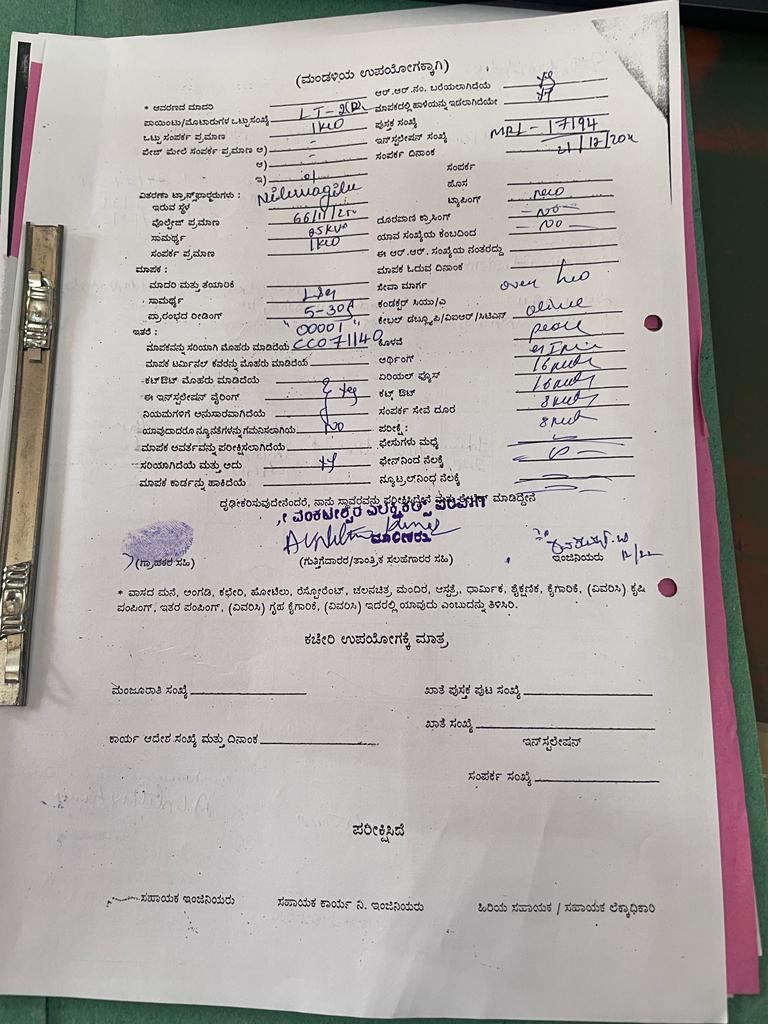 (ಮಂಡಳಿಯ ಉಪಯೋಗಕ್ಕಾಗಿ)
* ಆವರಣದ ಮಾದರಿ
ಪಾಯಿಂಟು/ಮೋಟಾರುಗಳ ಒಟ್ಟು ಸಂಖ್ಯೆ LT-2
ಒಟ್ಟು ಸಂಪರ್ಕ ಪ್ರಮಾಣ 1KW
ಪೇಜ್ ಮೇಲೆ ಸಂಪರ್ಕ ಪ್ರಮಾಣ ಅ) -
ಆ) -
ಇ)
ವಿತರಣಾ ಟ್ರಾನ್ಸ್‌ಫಾರ್ಮರುಗಳು :
ಇರುವ ಸ್ಥಳ
ವೋಲ್ಟೇಜ್ ಪ್ರಮಾಣ
ಸಾಮರ್ಥ್ಯ 25KVA
ಸಂಪರ್ಕ ಪ್ರಮಾಣ 1KW
ಮಾಪಕ :
ಮಾದರಿ ಮತ್ತು ತಯಾರಿಕೆ
ಸಾಮರ್ಥ್ಯ 5-30A
ಪ್ರಾರಂಭದ ರೀಡಿಂಗ್ "00001"
ಇತರೆ :
ಮಾಪಕವನ್ನು ಸರಿಯಾಗಿ ಮೊಹರು ಮಾಡಿದೆಯೆ CC071140
ಮಾಪಕ ಟರ್ಮಿನಲ್ ಕವರನ್ನು ಮೊಹರು ಮಾಡಿದೆಯೆ
ಕಟ್‌ಔಟ್ ಮೊಹರು ಮಾಡಿದೆಯೆ
ಈ ಇನ್‌ಸ್ಟಲೇಷನ್ ವೈರಿಂಗ್ yes
ನಿಯಮಗಳಿಗೆ ಅನುಸಾರವಾಗಿದೆಯೆ
ಯಾವುದಾದರೂ ನ್ಯೂನತೆಗಳನ್ನು ಗಮನಿಸಲಾಗಿಯೆ NO
ಮಾಪಕ ಆವರ್ತವನ್ನು ಪರೀಕ್ಷಿಸಲಾಗಿದೆಯೆ
ಸರಿಯಾಗಿದೆಯೆ ಮತ್ತು ಅದು
ಮಾಪಕ ಕಾರ್ಡನ್ನು ಹಾಕಿದೆಯೆ
ಆರ್.ಆರ್.ನಂ. ಬರೆಯಲಾಗಿದೆಯೆ
ಮಾಪಕದಲ್ಲಿ ಹಾಳೆಯನ್ನು ಇಡಲಾಗಿದೆಯೇ
ಪುಸ್ತಕ ಸಂಖ್ಯೆ
ಇನ್‌ಸ್ಟಲೇಷನ್ ಸಂಖ್ಯೆ MRL-17194
ಸಂಪರ್ಕ ದಿನಾಂಕ
ಸಂಪರ್ಕ
ಹೊಸ new
ಟ್ಯಾಪಿಂಗ್ - NO -
ದೂರವಾಣಿ ಕ್ರಾಸಿಂಗ್ - NO -
ಯಾವ ಸಂಖ್ಯೆಯ ಕಂಬದಿಂದ
ಈ ಆರ್.ಆರ್. ಸಂಖ್ಯೆಯ ನಂತರದ್ದು
ಮಾಪಕ ಓದುವ ದಿನಾಂಕ
ಸೇವಾ ಮಾರ್ಗ over
ಕಂಡಕ್ಟರ್ ಸಿಯು/ಎ
ಕೇಬಲ್ ಡಬ್ಲ್ಯೂಪಿ/ವಿಐಆರ್/ಸಿಟಿಎಸ್
ಕೊಳವೆ
ಅರ್ಥಿಂಗ್
ಏರಿಯಲ್ ಫ್ಯೂಸ್
ಕಟ್ಔಟ್
ಸಂಪರ್ಕ ಸೇವೆ ದೂರ
ಪರೀಕ್ಷೆ :
ಫೇಸುಗಳು ಮಧ್ಯೆ
ಫೇಸ್‌ನಿಂದ ನೆಲಕ್ಕೆ
ನ್ಯೂಟ್ರಲ್‌ನಿಂದ ನೆಲಕ್ಕೆ
ದೃಢೀಕರಿಸುವುದೇನೆಂದರೆ, ನಾನು ಸ್ಥಾವರವನ್ನು ಪರೀಕ್ಷಿಸಿದ್ದೇನೆ ಮತ್ತು ಮಾಡಿದ್ದೇನೆ
ವೆಂಕಟೇಶ್ವರ ಎಲೆಕ್ಟ್ರಿಕಲ್ಸ್
ಮಾಲೀಕರು
(ಗ್ರಾಹಕರ ಸಹಿ) (ಗುತ್ತಿಗೆದಾರರ/ತಾಂತ್ರಿಕ ಸಲಹೆಗಾರರ ಸಹಿ) ಇಂಜಿನಿಯರು
* ವಾಸದ ಮನೆ, ಅಂಗಡಿ, ಕಛೇರಿ, ಹೋಟೆಲು, ರೆಸ್ಟೋರೆಂಟ್, ಚಲನಚಿತ್ರ, ಮಂದಿರ, ಆಸ್ಪತ್ರೆ, ಧಾರ್ಮಿಕ, ಶೈಕ್ಷಣಿಕ, ಕೈಗಾರಿಕೆ, (ವಿವರಿಸಿ) ಕೃಷಿ
ಪಂಪಿಂಗ್, ಇತರ ಪಂಪಿಂಗ್, (ವಿವರಿಸಿ) ಗೃಹ ಕೈಗಾರಿಕೆ, (ವಿವರಿಸಿ) ಇದರಲ್ಲಿ ಯಾವುದು ಎಂಬುದನ್ನು ತಿಳಿಸಿರಿ.
ಕಚೇರಿ ಉಪಯೋಗಕ್ಕೆ ಮಾತ್ರ
ಮಂಜೂರಾತಿ ಸಂಖ್ಯೆ ಖಾತೆ ಪುಸ್ತಕ ಪುಟ ಸಂಖ್ಯೆ
ಖಾತೆ ಸಂಖ್ಯೆ
ಕಾರ್ಯ ಆದೇಶ ಸಂಖ್ಯೆ ಮತ್ತು ದಿನಾಂಕ ಇನ್‌ಸ್ಟಲೇಷನ್
ಸಂಪರ್ಕ ಸಂಖ್ಯೆ
ಪರೀಕ್ಷಿಸಿದೆ
ಸಹಾಯಕ ಇಂಜಿನಿಯರು ಸಹಾಯಕ ಕಾರ್ಯ ನಿ. ಇಂಜಿನಿಯರು ಹಿರಿಯ ಸಹಾಯಕ / ಸಹಾಯಕ ಲೆಕ್ಕಾಧಿಕಾರಿ